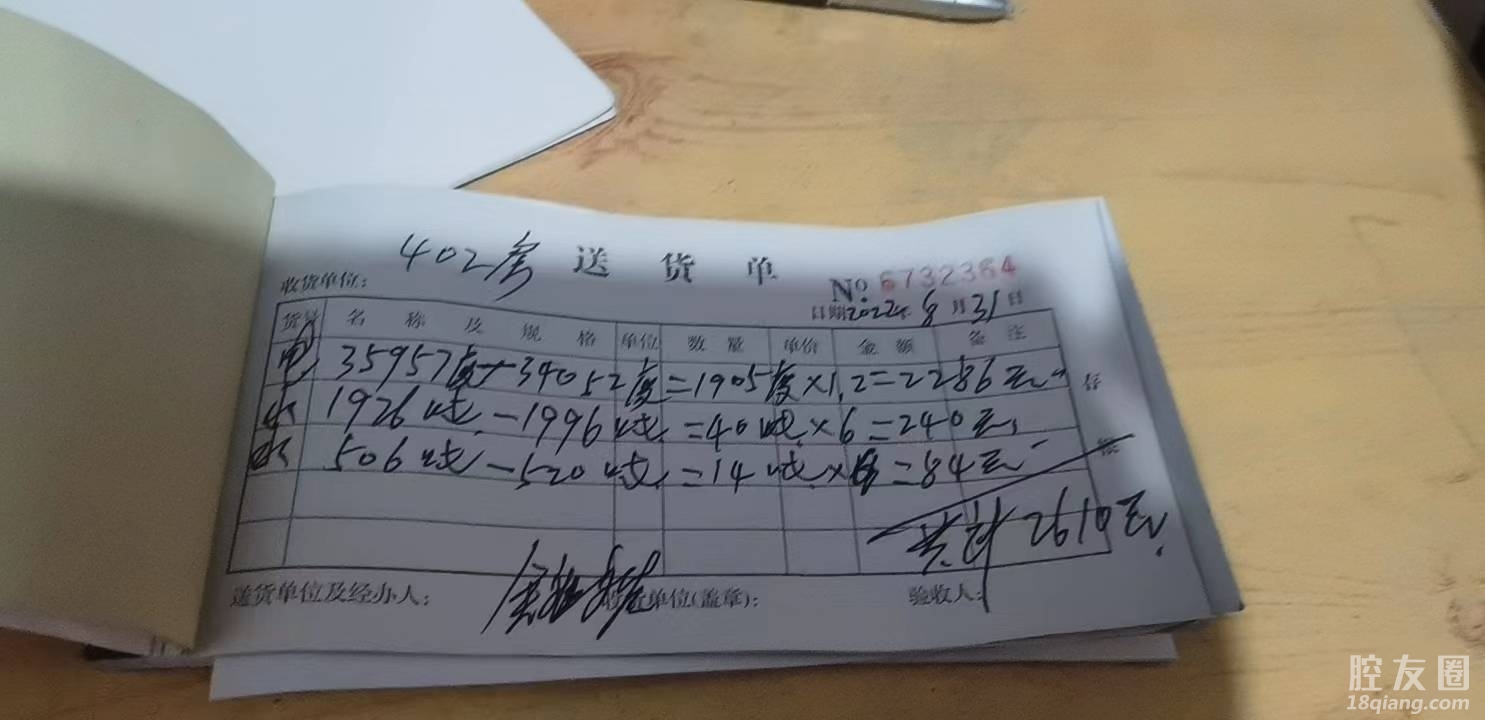 402房 送货单
收货单位:
№ 6732364
日期2022年8月31日
货号 名称及规格 单位 数量 单价 金额 备注
电 35957度-34052度=1905度×1.2=2286元
水 1926吨-1996吨=40吨×6=240元
水 506吨-520吨=14吨×6=84元
存
共计2610元
送货单位及经办人: 收货单位(盖章): 验收人:
腔友圈
18qiang.com